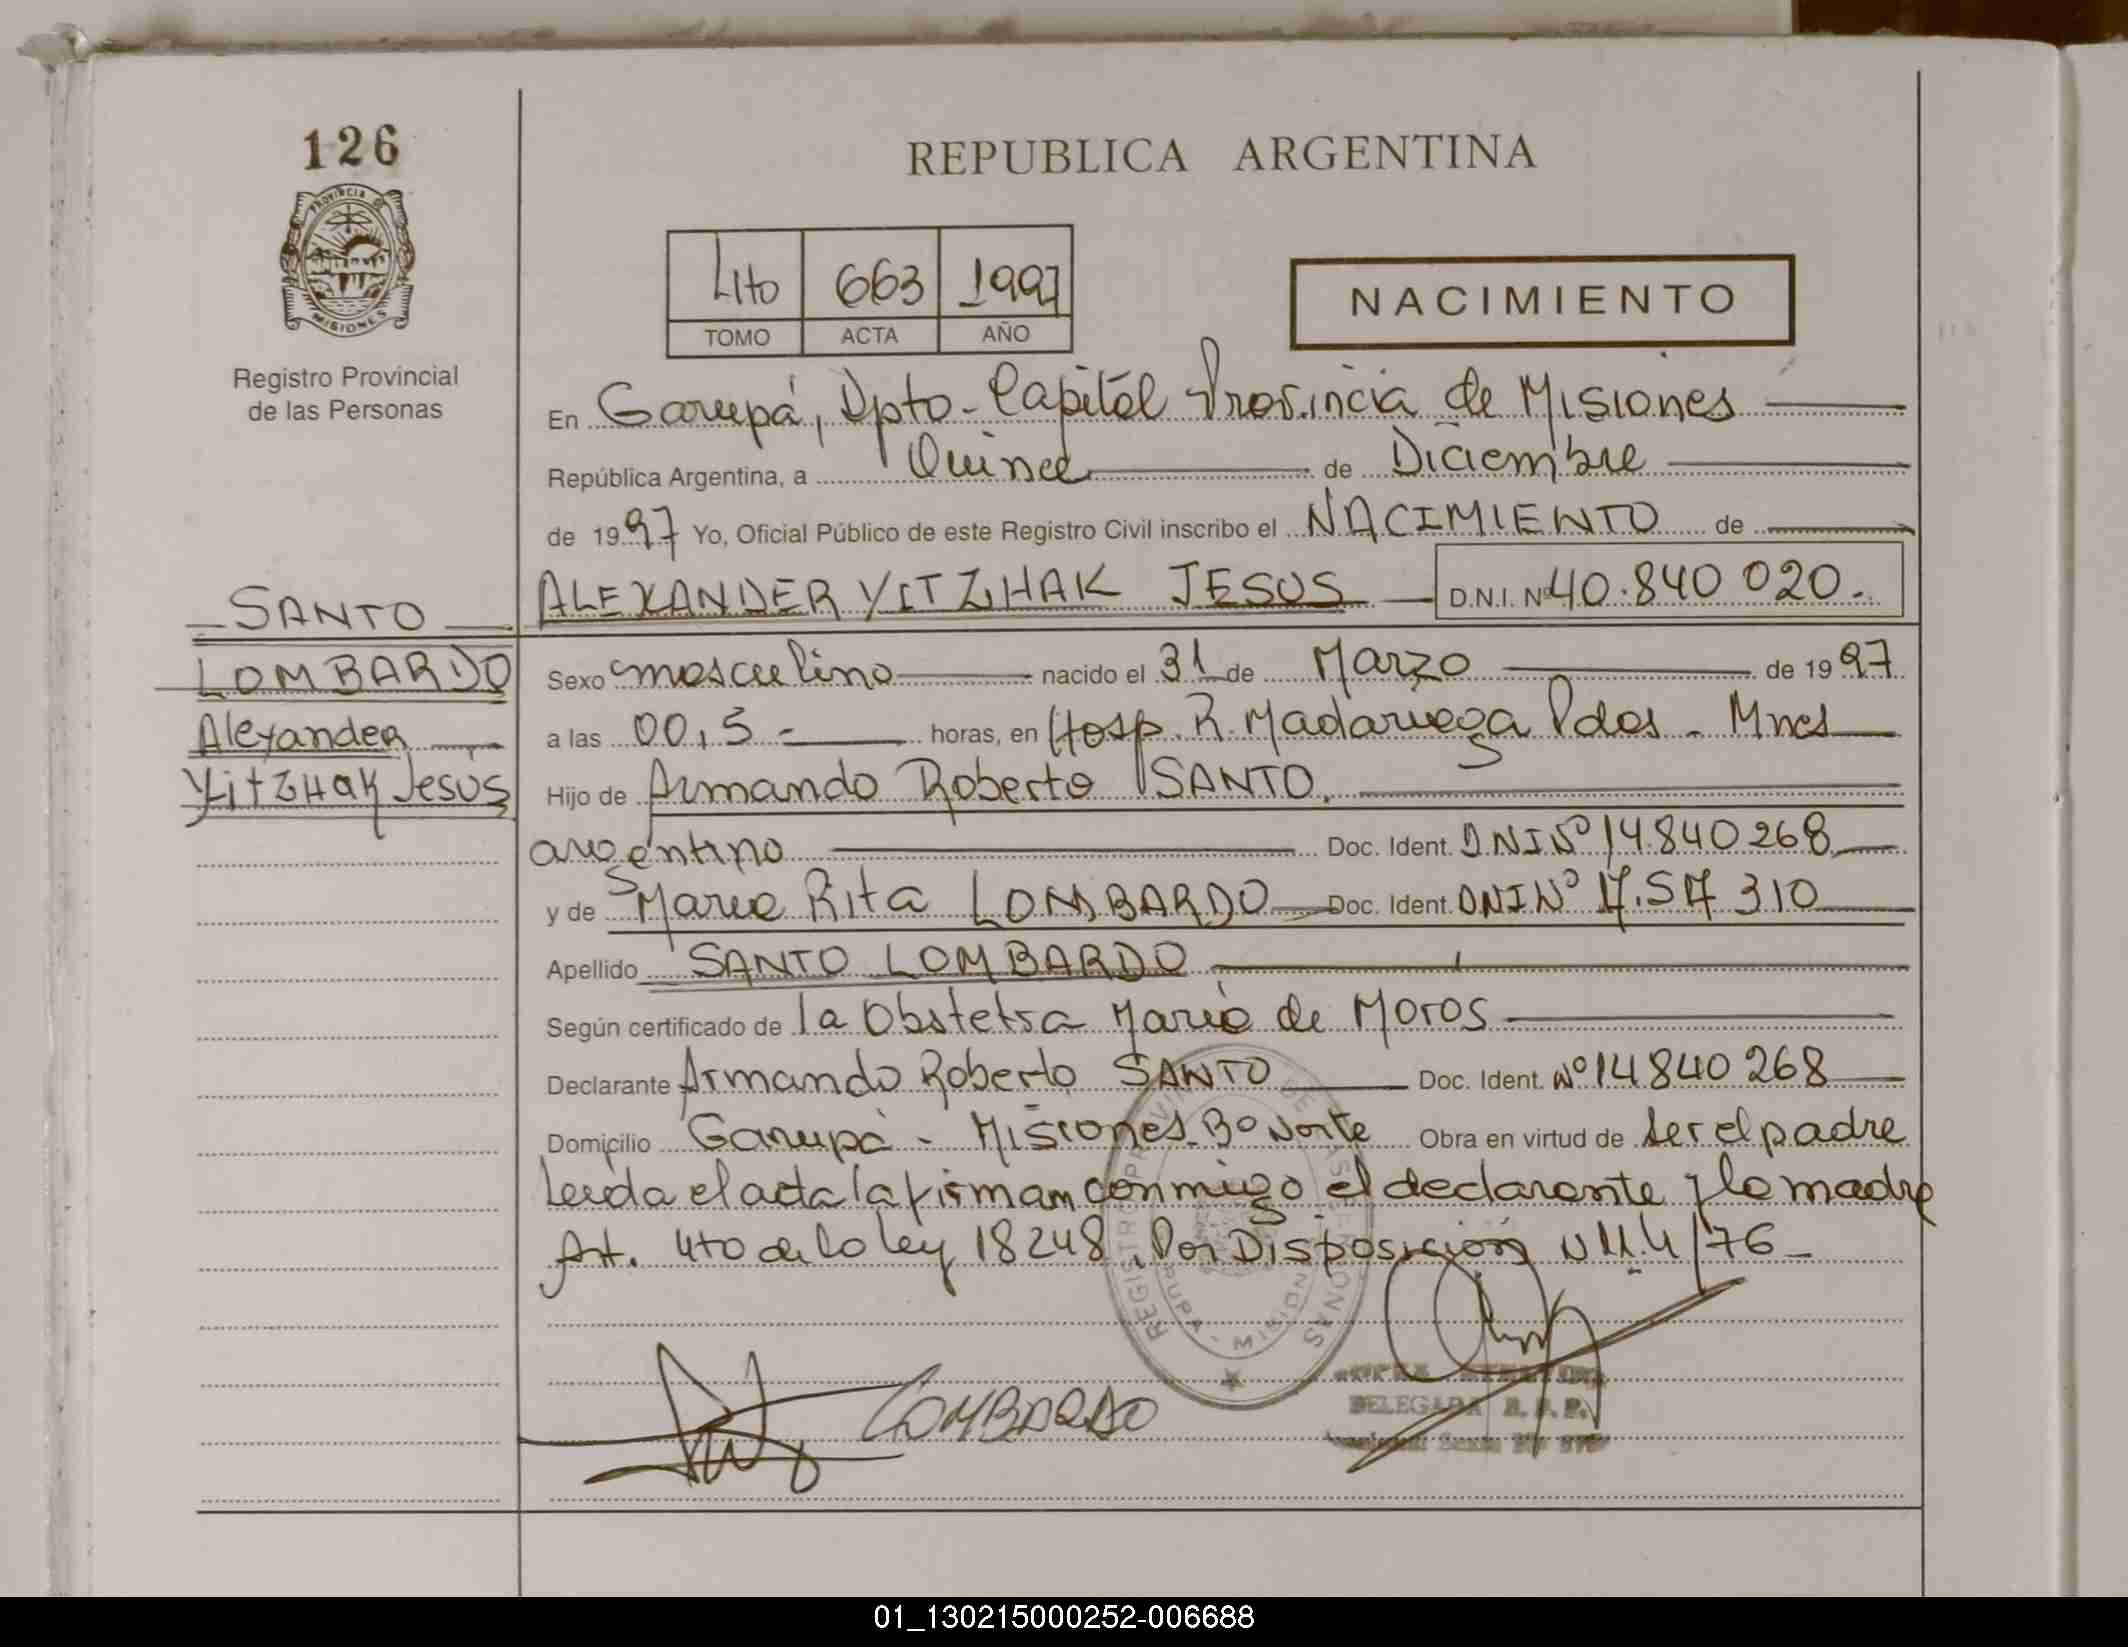 126
PROVINCIA DE
MISIONES
Registro Provincial
de las Personas
SANTO
LOMBARDO
Alexander
Yitzhak Jesús
REPUBLICA ARGENTINA
4to 663 1997
TOMO ACTA AÑO
NACIMIENTO
En Garupá, Dpto. Capital Provincia de Misiones
República Argentina, a Quince de Diciembre
de 1997 Yo, Oficial Público de este Registro Civil inscribo el NACIMIENTO de
ALEXANDER YITZHAK JESUS D.N.I. Nº 40.840 020.
Sexo masculino nacido el 31 de Marzo de 1997
a las 00,5 horas, en Hosp. R. Madariaga Pdas - Mnes
Hijo de Armando Roberto SANTO.
argentino Doc. Ident. DNI Nº 14.840 268
y de Maria Rita LOMBARDO Doc. Ident. DNI Nº 17.517 310
Apellido SANTO LOMBARDO
Según certificado de la Obstetra María de Moros
Declarante Armando Roberto SANTO Doc. Ident. Nº 14840 268
Domicilio Garupá - Misiones Bº Norte Obra en virtud de ser el padre
Leída el acta la firman conmigo el declarante y la madre
Art. 4to de la ley 18248. Por Disposición N 11.4/76
LOMBARDO
DELEGADA R. P. P.
01_130215000252-006688